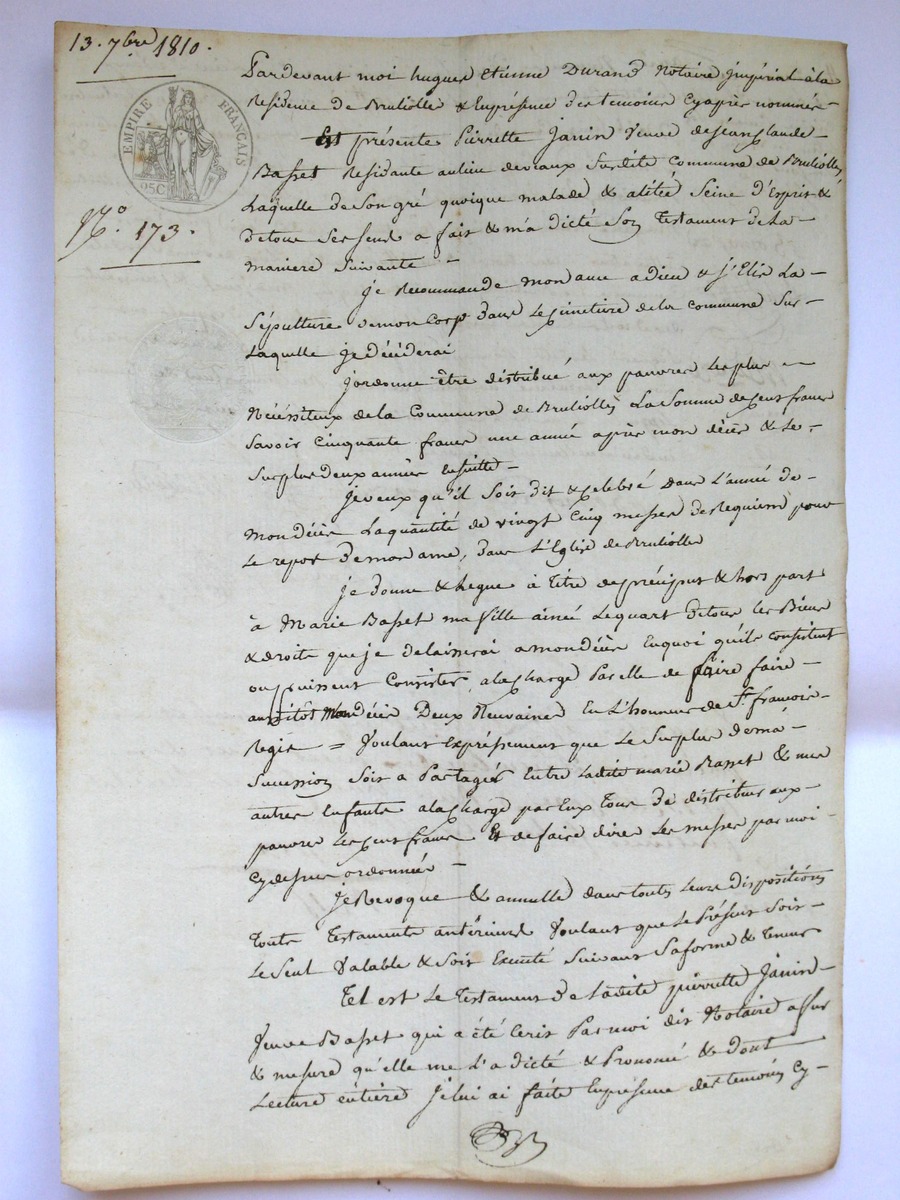 13. 7bre 1810.
EMPIRE FRANÇAIS
25C
No. 173.
Pardevant moi hugues Etienne Durand Notaire Impérial à la
Residence de Brullolle & Enprésence des temoins Cyaprès nommés
Est présente Pierrette Janin Veuve de Jean Claude
Basset Residante au lieu de Viaux Susdite Commune de Brullolles
Laquelle de Son gré quoique malade & alitée Seine d'Esprit &
de tous Ses Sens a fait & m'a dicté Son Testament de La
maniere Suivante -
Je Recommande mon ame a dieu & j'Elis La -
Sépulture de mon Corps dans Le Cimetiere de la Commune Sur -
Laquelle je décéderai
J'ordonne être distribué aux pauvres Les plus -
Nécéssiteux de la Commune de Brullolles La Somme de Cent francs
Savoir Cinquante francs une année après mon décès & Le -
Surplus deux années Ensuitte -
Je veux qu'il Soit dit & Celebré dans L'année de -
mon décès La quantité de vingt Cinq messes de Requiem pour
Le repos de mon ame, dans L'Eglise de Brullolles
Je donne & Legue à Titre de préciput & hors part
à Marie Basset ma fille ainée Le quart de tous Les Biens
& droits que je delaisserai a mon décès En quoi qu'ils consistent
ou puissent Consister, a la Charge Par elle de faire faire -
aussitôt Mon décès Deux Neuvaines En L'honneur de St. francois -
Regis = Voulant Expréssement que Le Surplus de ma
Succession Soit a Partager Entre Ladite marie Basset & mes
autres Enfants a la Charge par Eux Tous de distribuer aux -
pauvres Les Cent francs Et de faire dire Les messes par moi -
Cy dessus ordonnées -
Je Revoque & annulle dans toutes Leurs dispositions
Tous Testaments antérieurs Voulant que Le Présent Soit -
Le Seul Valable & Soit Executé Suivant Sa forme & Teneur
Tel est Le Testament de Ladite pierrette Janin -
Veuve Basset qui a été Ecrit Par moi dit Notaire a fur
& mesure qu'elle me L'a dicté & Prononcé & dont
Lecture entière Je lui ai faite Enprésence des temoins Cy -